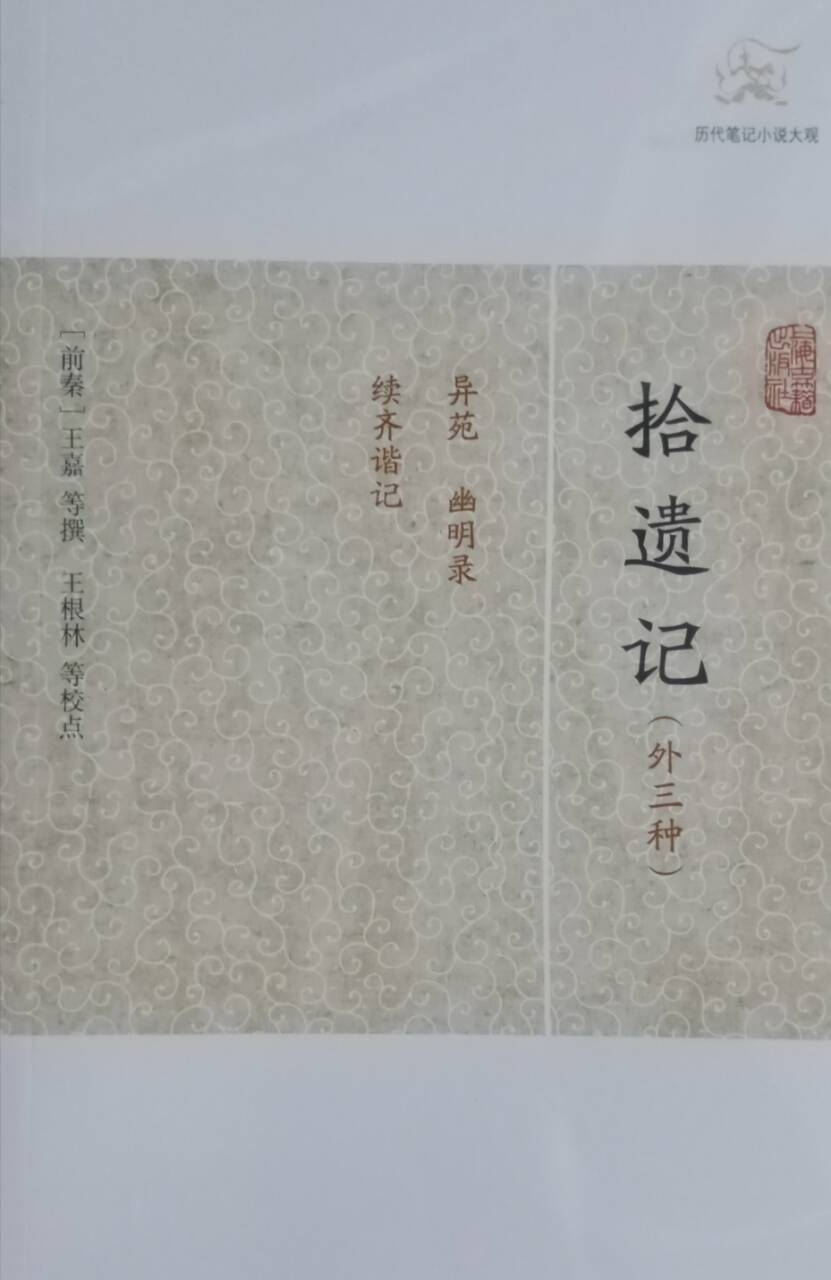 历代笔记小说大观
上海古籍出版社
拾遗记（外三种）
异苑 幽明录
续齐谐记
［前秦］王嘉 等撰 王根林 等校点